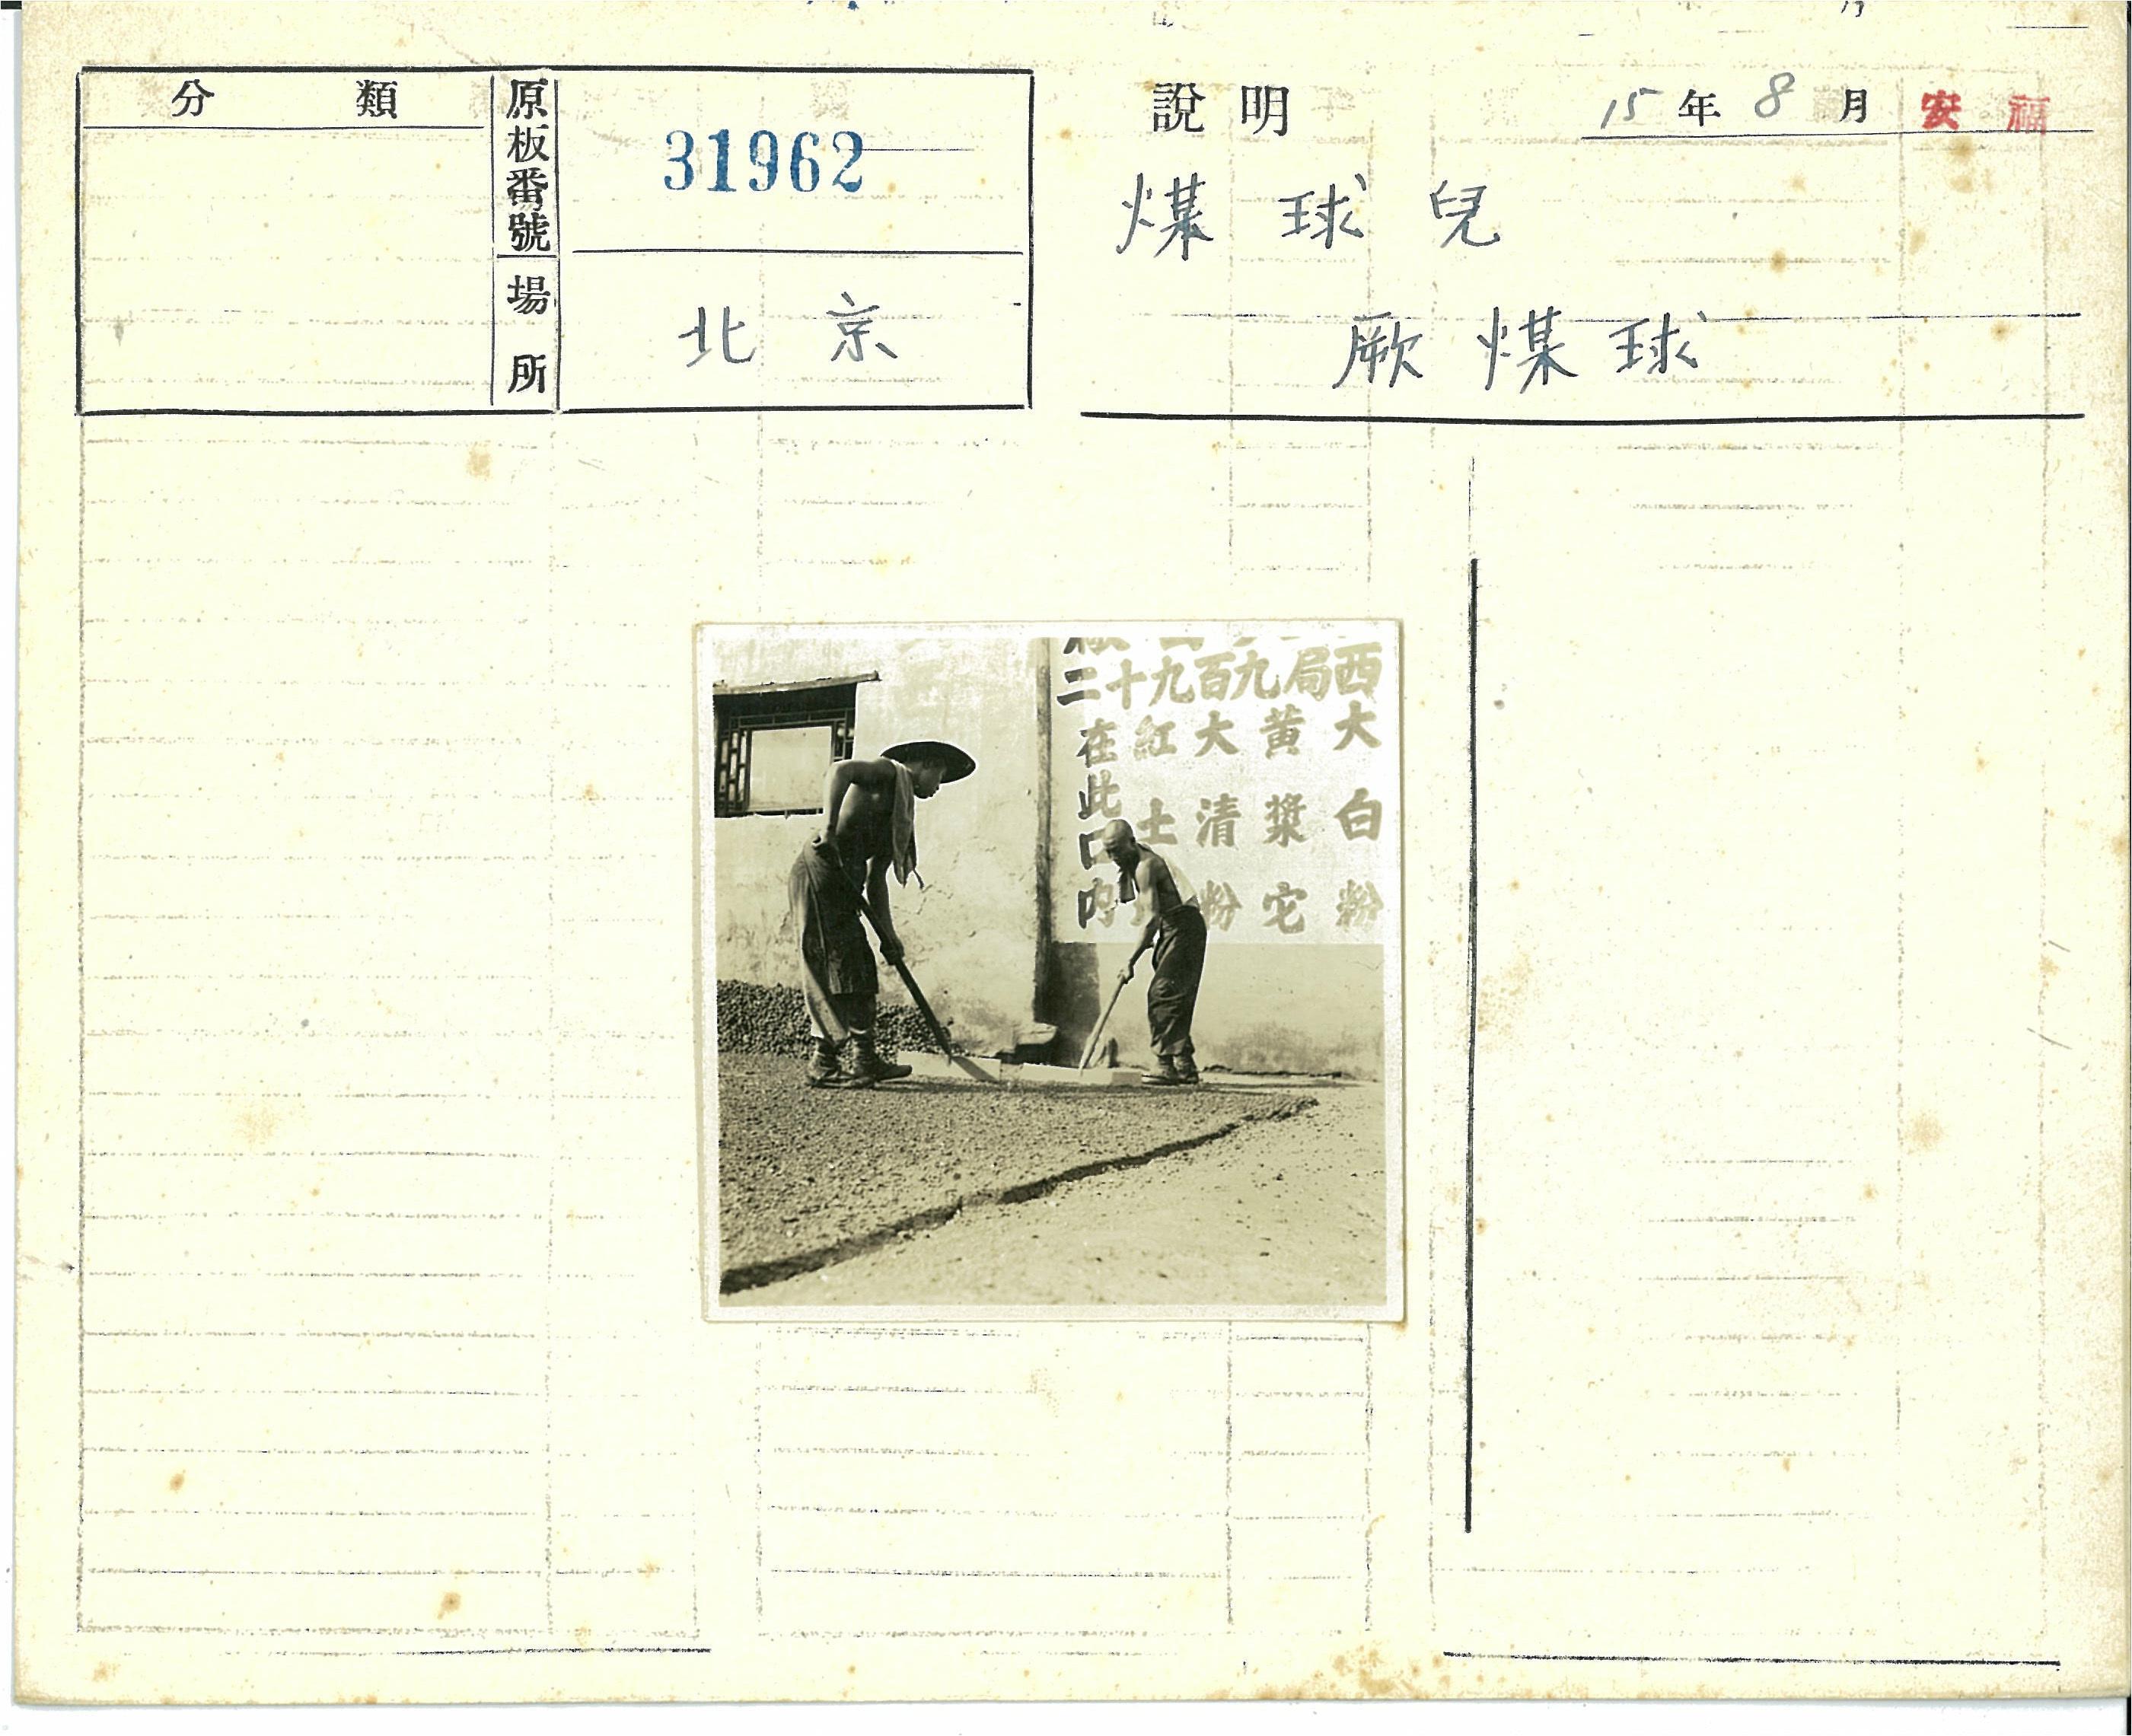 分類
原板番號
31962
場所
北京
說明
15年8月
安福
煤球兒
厥煤球
西局九百九十二
大白粉
黄漿它
大清粉
紅土
在此口内